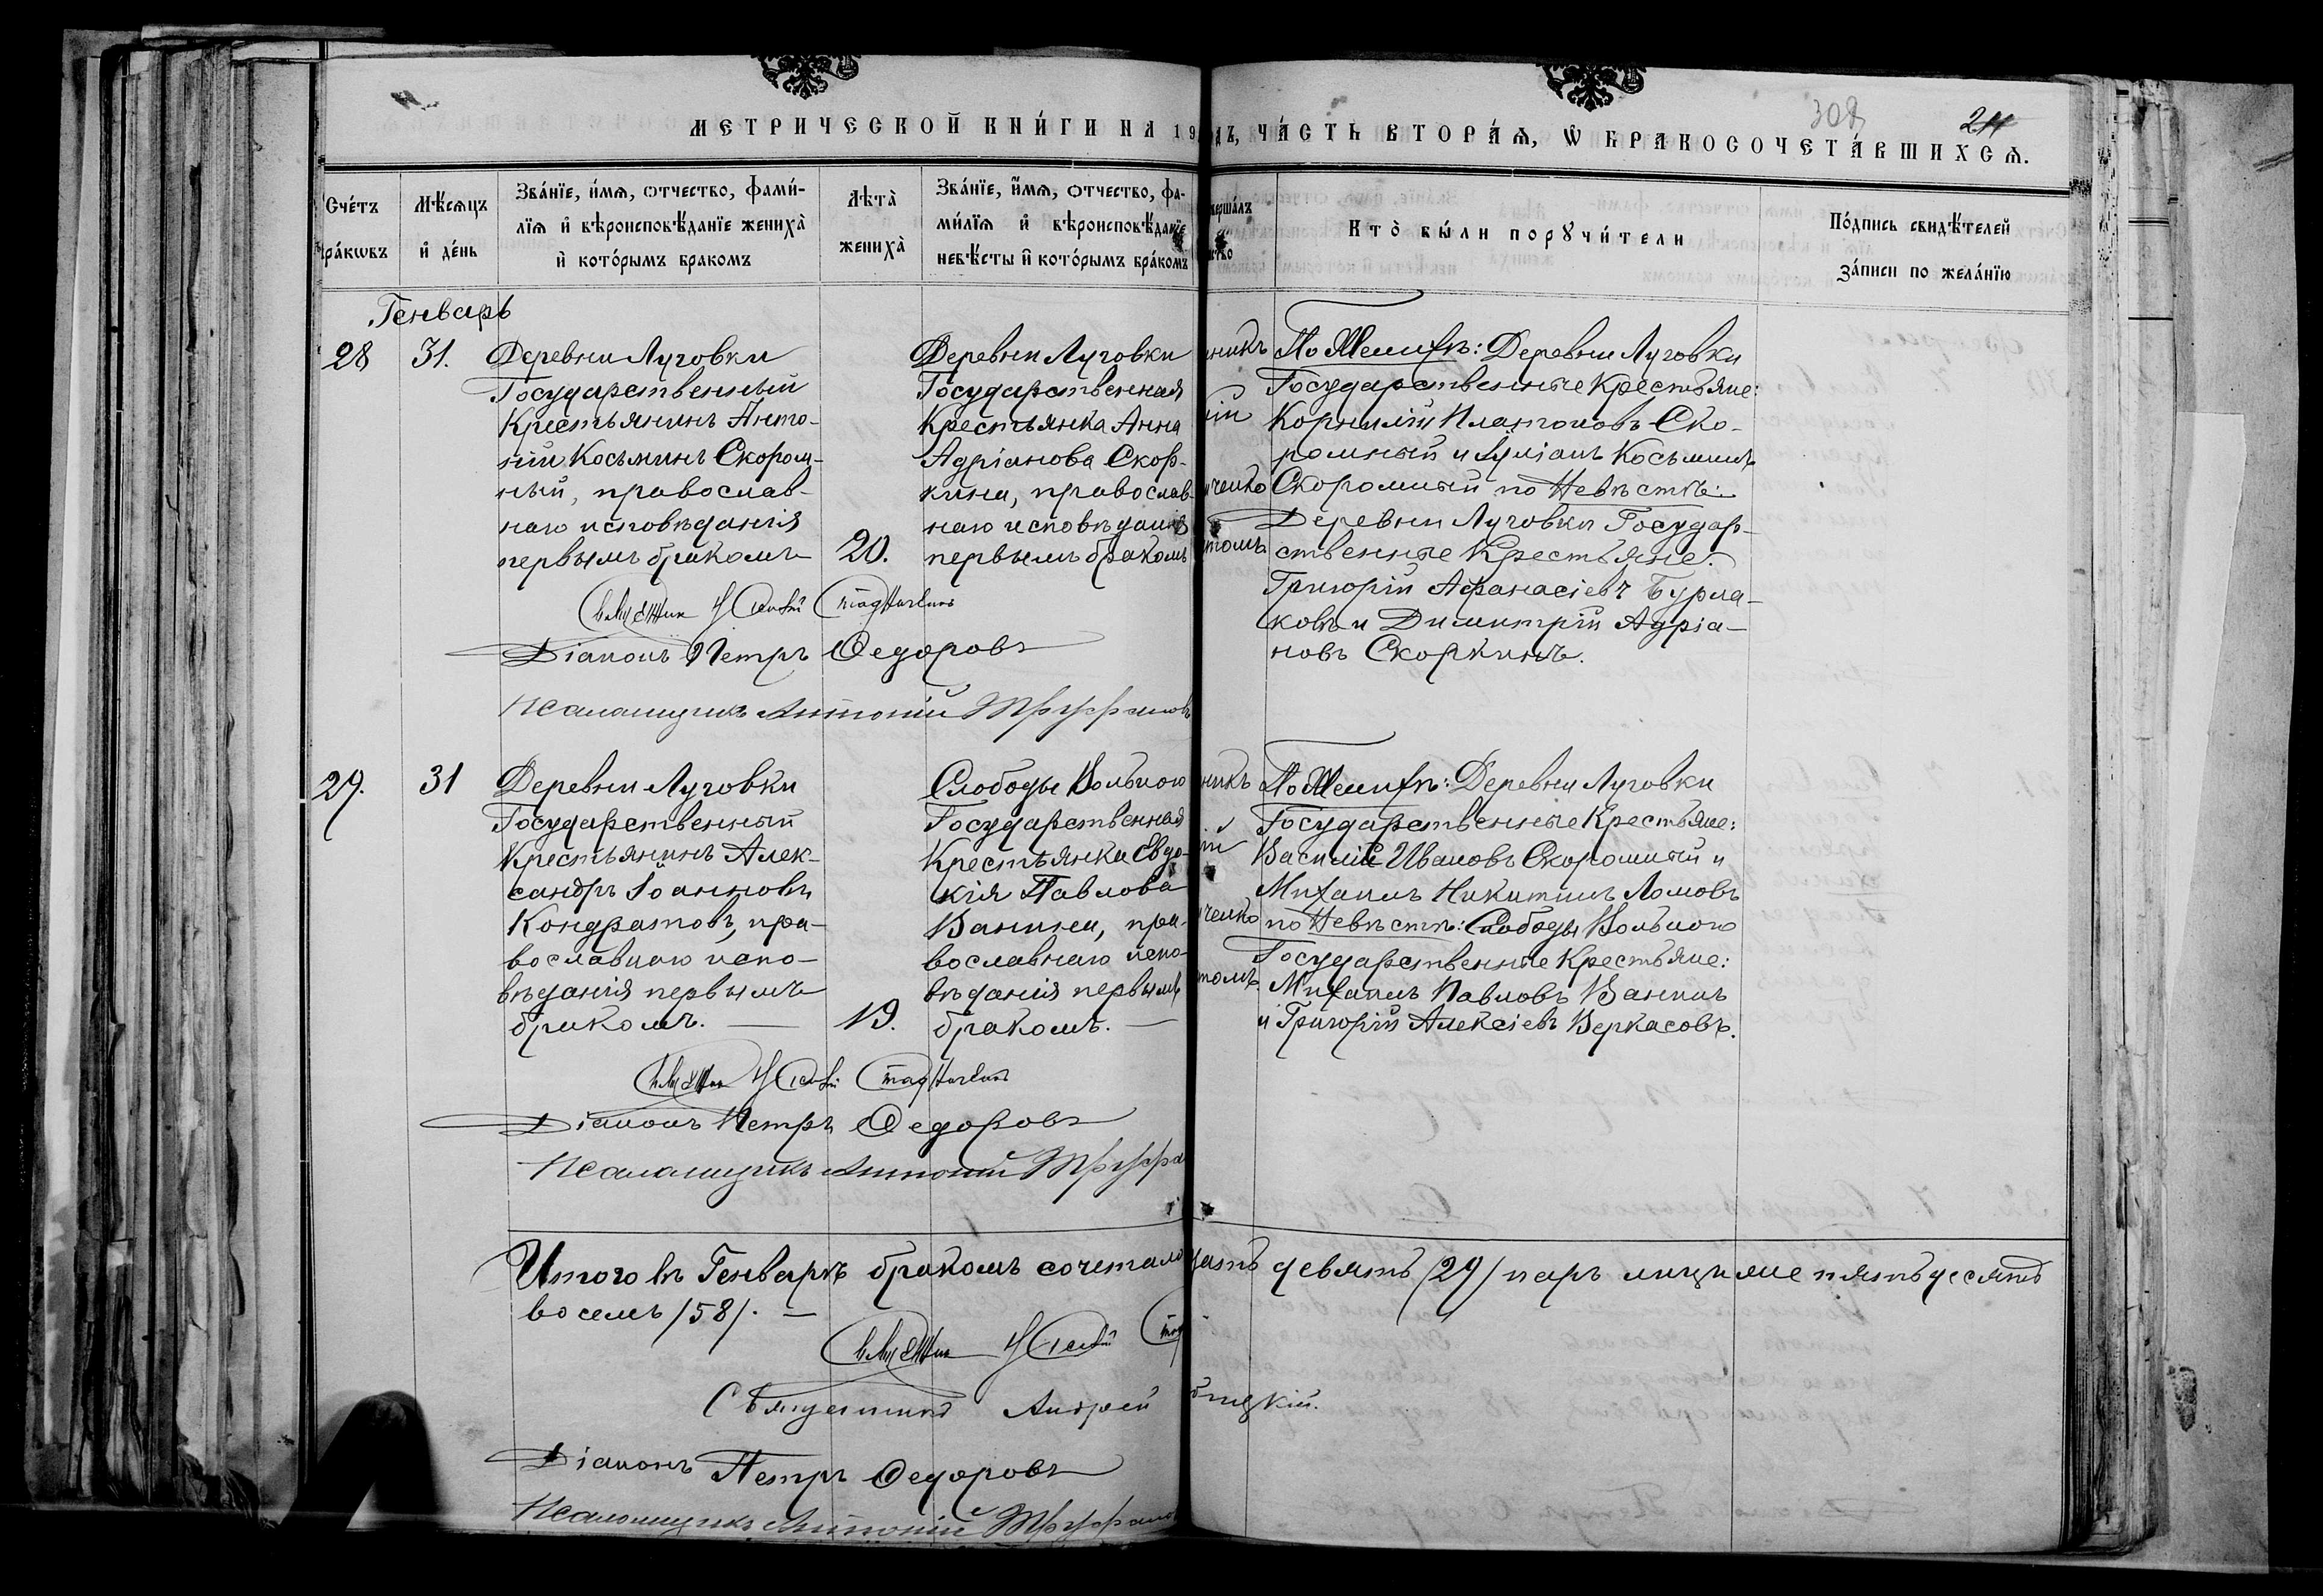 308
МЕТРИЧЕСКОЙ КНИ́ГИ НА 19
ДЪ, ЧА́СТЬ ВТОРА́Ѧ, Ѡ БРАКОСОЧЕТА́ВШИХСѦ.
Сче́тъ
бра́кѡвъ
Мѣ́сѧцъ
и҆ де́нь
Зва́нїе, и҆́мѧ, ѻтчество, фами́-
лїѧ и҆ вѣроисповѣ́данїе жениха̀
и҆ кото́рымъ бракомъ
Лѣта̀
жениха̀
Зва́нїе, и҆́мѧ, ѻтчество, фа-
ми́лїѧ и҆ вѣроисповѣ́данїе
невѣ́сты и҆ кото́рымъ бра́комъ
вершалъ
ство
Кто̀ бы́ли порꙋчи́тели
По́дпись свидѣ́телей
за́писи по жела́нїю
Генварь
28
31.
Деревни Луговки
Государственный
Крестьянинъ Анто-
ній Косьминъ Скором-
ный, православ-
наго исповѣданія
первымъ бракомъ
20.
Деревни Луговки
Государственная
Крестьянка Анна
Адріанова Скор-
кина, православ-
наго исповѣданія
первымъ бракомъ
никъ
ій
ченко
томъ
По Женихѣ: Деревни Луговки
Государственные Крестьяне:
Корнилій Платоновъ Ско-
ромный и Іуліанъ Косьминъ
Скоромный по Невѣстѣ:
Деревни Луговки Государ-
ственные Крестьяне:
Григорій Афанасіевъ Бурла-
ковъ и Димитрій Адріа-
новъ Скоркинъ.
Діаконъ Петръ Ѳедоровъ
Псаломщикъ Антоній Труфановъ
29.
31
Деревни Луговки
Государственный
Крестьянинъ Алек-
сандръ Іоанновъ
Кондратовъ, пра-
вославнаго испо-
вѣданія первымъ
бракомъ.
19.
Слободы Вольной
Государственная
Крестьянка Евдо-
кія Павлова
Ванина, пра-
вославнаго испо-
вѣданія первымъ
бракомъ.
никъ
ій
ченко
томъ
По Женихѣ: Деревни Луговки
Государственные Крестьяне:
Василій Ивановъ Скоромный и
Михаилъ Никитинъ Ломовъ
по Невѣстѣ: Слободы Вольной
Государственные Крестьяне:
Михаилъ Павловъ Ванинъ
и Григорій Алексіевъ Веркасовъ.
Діаконъ Петръ Ѳедоровъ
Псаломщикъ Антоній Труфа
Итого въ Генварѣ бракомъ сочетало
цать девять /29/ паръ лицъ пятьдесятъ
восемь /58/.
Священникъ Андрей
бицкій.
Діаконъ Петръ Ѳедоровъ
Псаломщикъ Антоній Труфанов